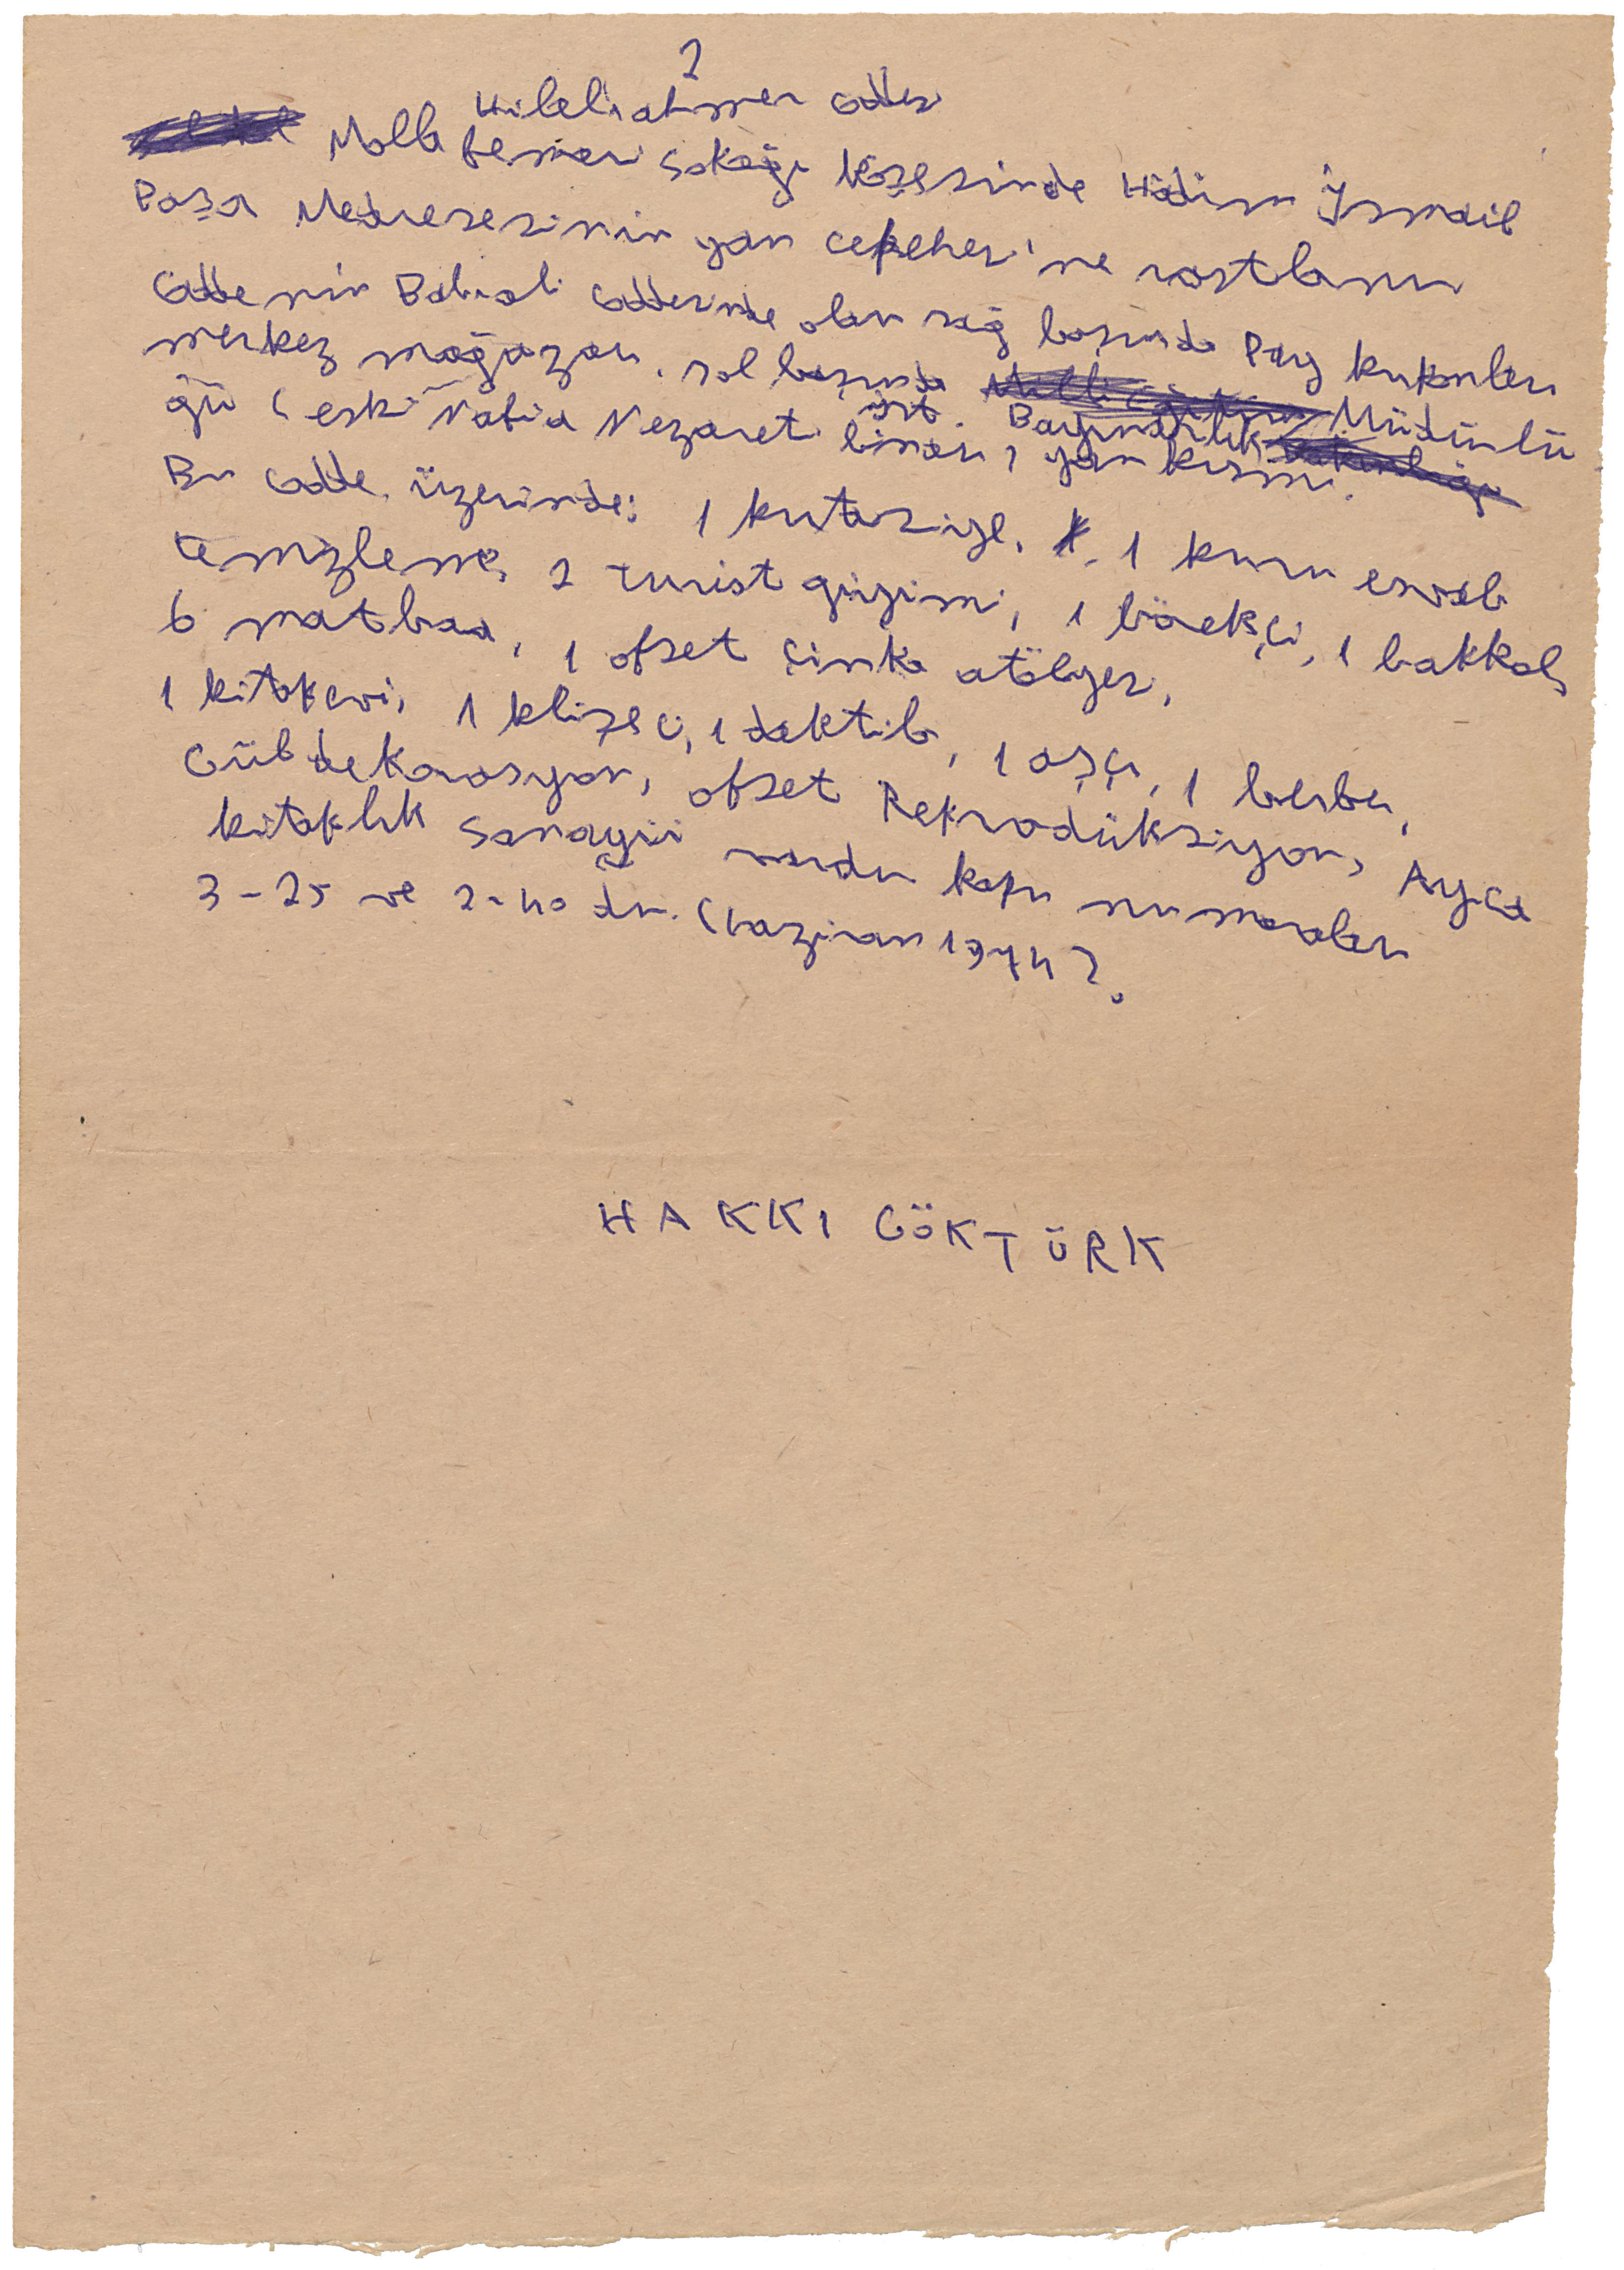 2
Hilaliahmer Caddesi
Molla Fenari Sokağı köşesinde Hadım İsmail
Paşa Medresesinin yan cephesi'ne rastlanır
Caddenin Babıali Caddesinde olan sağ başında Pay kuponları
merkez mağazası, sol başında Milli Müdürlü
ist. Bayındırlık
ğü (eski Nafia Nezareti binası) yan kısmı.
Bu Cadde üzerinde: 1 kırtasiye, 1 kuru esvab
temizleme, 2 turist giyimi, 1 börekçi, 1 bakkal,
6 matbaa, 1 ofset çinko atölyesi,
1 kitapevi, 1 klişeci, 1 daktilo, 1 aşçı, 1 berber,
Gül dekorasyon, ofset Reprodüksiyon, Ayça
kitaplık Sanayii vardır kapı numaraları
3-25 ve 2-40 dır. (haziran 1974).
HAKKI GÖKTÜRK